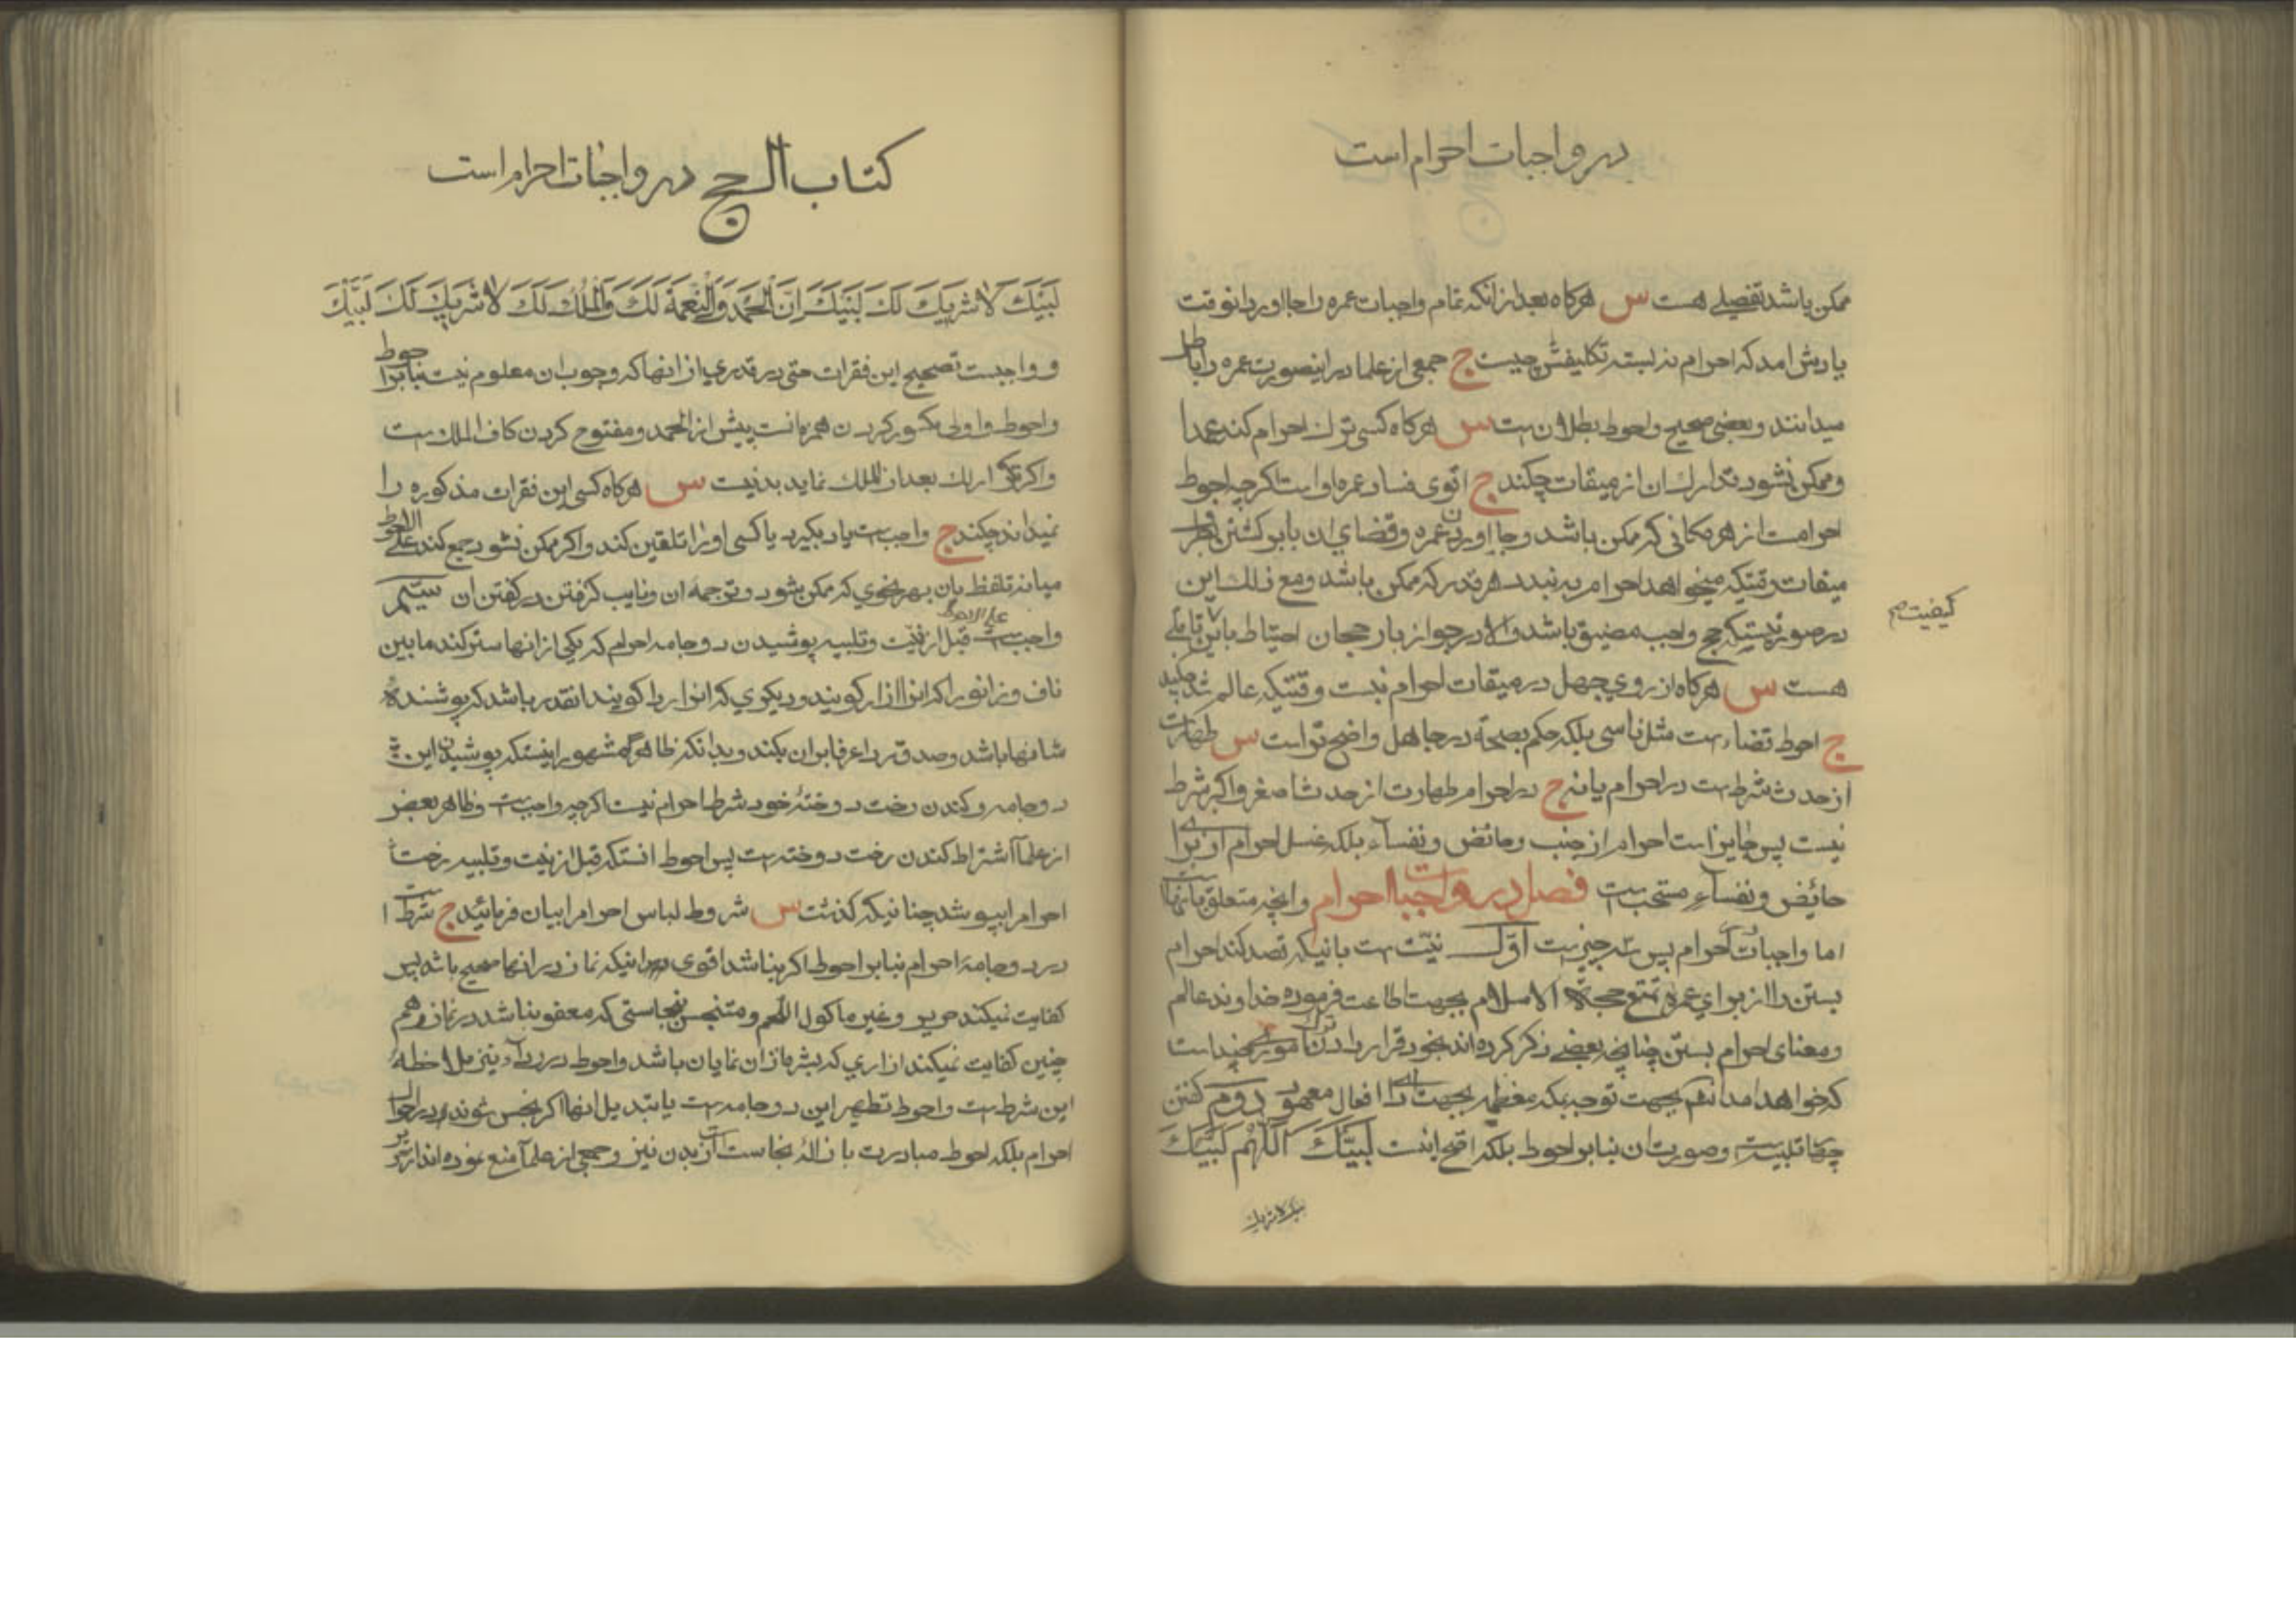 در واجبات احرام است
ممکن باشد تفصیلی هست س هرکاه بعد از انکه تمام واجبات عمره را بجا اورد انوقت
یادش امد که احرام نه بسته تکلیفش چیست ج جمعی از علما در اینصورت عمره را باطل
میدانند و بعضی صحیح و احوط بطلان است س هرکاه کسی ترک احرام کند عمدا
و ممکن نشود تدارک ان از میقات چکند ج اقوی فساد عمره او است اکرچه احوط
احرامست از هر مکانی که ممکن باشد و بجا اوردن عمره و قضای ان با برکشتن بطرف
میقات وقتیکه میخواهد احرام به بندد هرقدر که ممکن باشد و مع ذلک این
در صورتیستکه حج واجب مضیق باشد والا در جواز یا رجحان احتیاط باین تاملی
کیفیت
هست س هرکاه از روی جهل در میقات احرام نبست وقتیکه عالم شد چکند
ج احوط قضاء است مثل ناسی بلکه حکم بصحة در جاهل واضح تر است س طهارت
از حدث شرط است در احرام یا نه ج در احرام طهارت از حدث اصغر و اکبر شرط
نیست پس جایز است احرام از جنب و حائض و نفساء بلکه غسل احرام از برای
حائض و نفساء مستحب است فصل در واجبات احرام و انچه متعلق بانها است
اما واجبات احرام پس سه چیز است اوّل نیّت است بانیکه قصد کند احرام
بستن را از برای عمره تمتع حجة الاسلام بجهت اطاعت فرموده خداوند عالم
و معنای احرام بستن چنانچه بعضی ذکر کرده اند بخود قرار دادن ترک امور چند است
که خواهد امد انشم بجهت توجه بمکه معظمه بجهت افعال معهود دویم کفتن
چهار تلبیه است و صورت ان بنابر احوط بلکه اقوی اینست لَبَّیْکَ اَللّٰهُمَّ لَبَّیْکَ
لبیک لا شریک
کتاب الحج در واجبات احرام است
لَبَّیْکَ لَا شَرِیکَ لَکَ لَبَّیْکَ اِنَّ الْحَمْدَ وَالنِّعْمَةَ لَکَ وَالْمُلْکَ لَکَ لَا شَرِیکَ لَکَ لَبَّیْکَ
و واجبست تصحیح این فقرات حتی در قدری از انها که وجوب ان معلوم نیست بنابر احوط
و احوط و اولی مکسور کردن همزه انست پیش از الحمد و مفتوح کردن کاف الملک است
و اکر تکرار لک بعد از الملک نماید بد نیست س هرکاه کسی این فقرات مذکوره را
نمیداند چکند ج واجب است یاد بکیرد یا کسی او را تلقین کند و اکر ممکن نشود جمع کند علی الاحوط
میانه تلفظ بان بهر نحوی که ممکن بشود و ترجمه ان و نایب کرفتن در کفتن ان سیّم
واجب است علی الاحوط قبل از نیّت و تلبیه پوشیدن دو جامه احرام که یکی از انها ستر کند مابین
ناف و زانو را که انرا ازار کویند و دیکری که انرا ردا کویند انقدر باشد که پوشنده
شانها باشد و صدق ردا عرفا بر ان بکند و بدانکه ظاهر مشهور اینستکه پوشیدن این
دو جامه و کندن رخت دوختهٔ خود شرط احرام نیست اکرچه واجب است و ظاهر بعض
از علما اشتراط کندن رخت دوخته است پس احوط انستکه قبل از نیت و تلبیه رخت
احرام را بپوشد چنانیکه کذشت س شروط لباس احرام را بیان فرمائید ج شرط است
در دو جامهٔ احرام بنابر احوط اکر بناشد اقوی اینکه نماز در انها صحیح باشد پس
کفایت نمیکند حریر و غیر ماکول اللحم و متنجس بنجاستی که معفو بناشد در نماز و هم
چنین کفایت نمیکند ازاری که بشره از ان نمایان باشد و احوط در ردآء نیز ملاحظهٔ
این شرط است و احوط تطهیر این دو جامه است یا تبدیل انها اکر نجس شوند در احوال
احرام بلکه احوط مبادرت با زالهٔ نجاست از بدن نیز و جمعی از علما منع نموده اند از